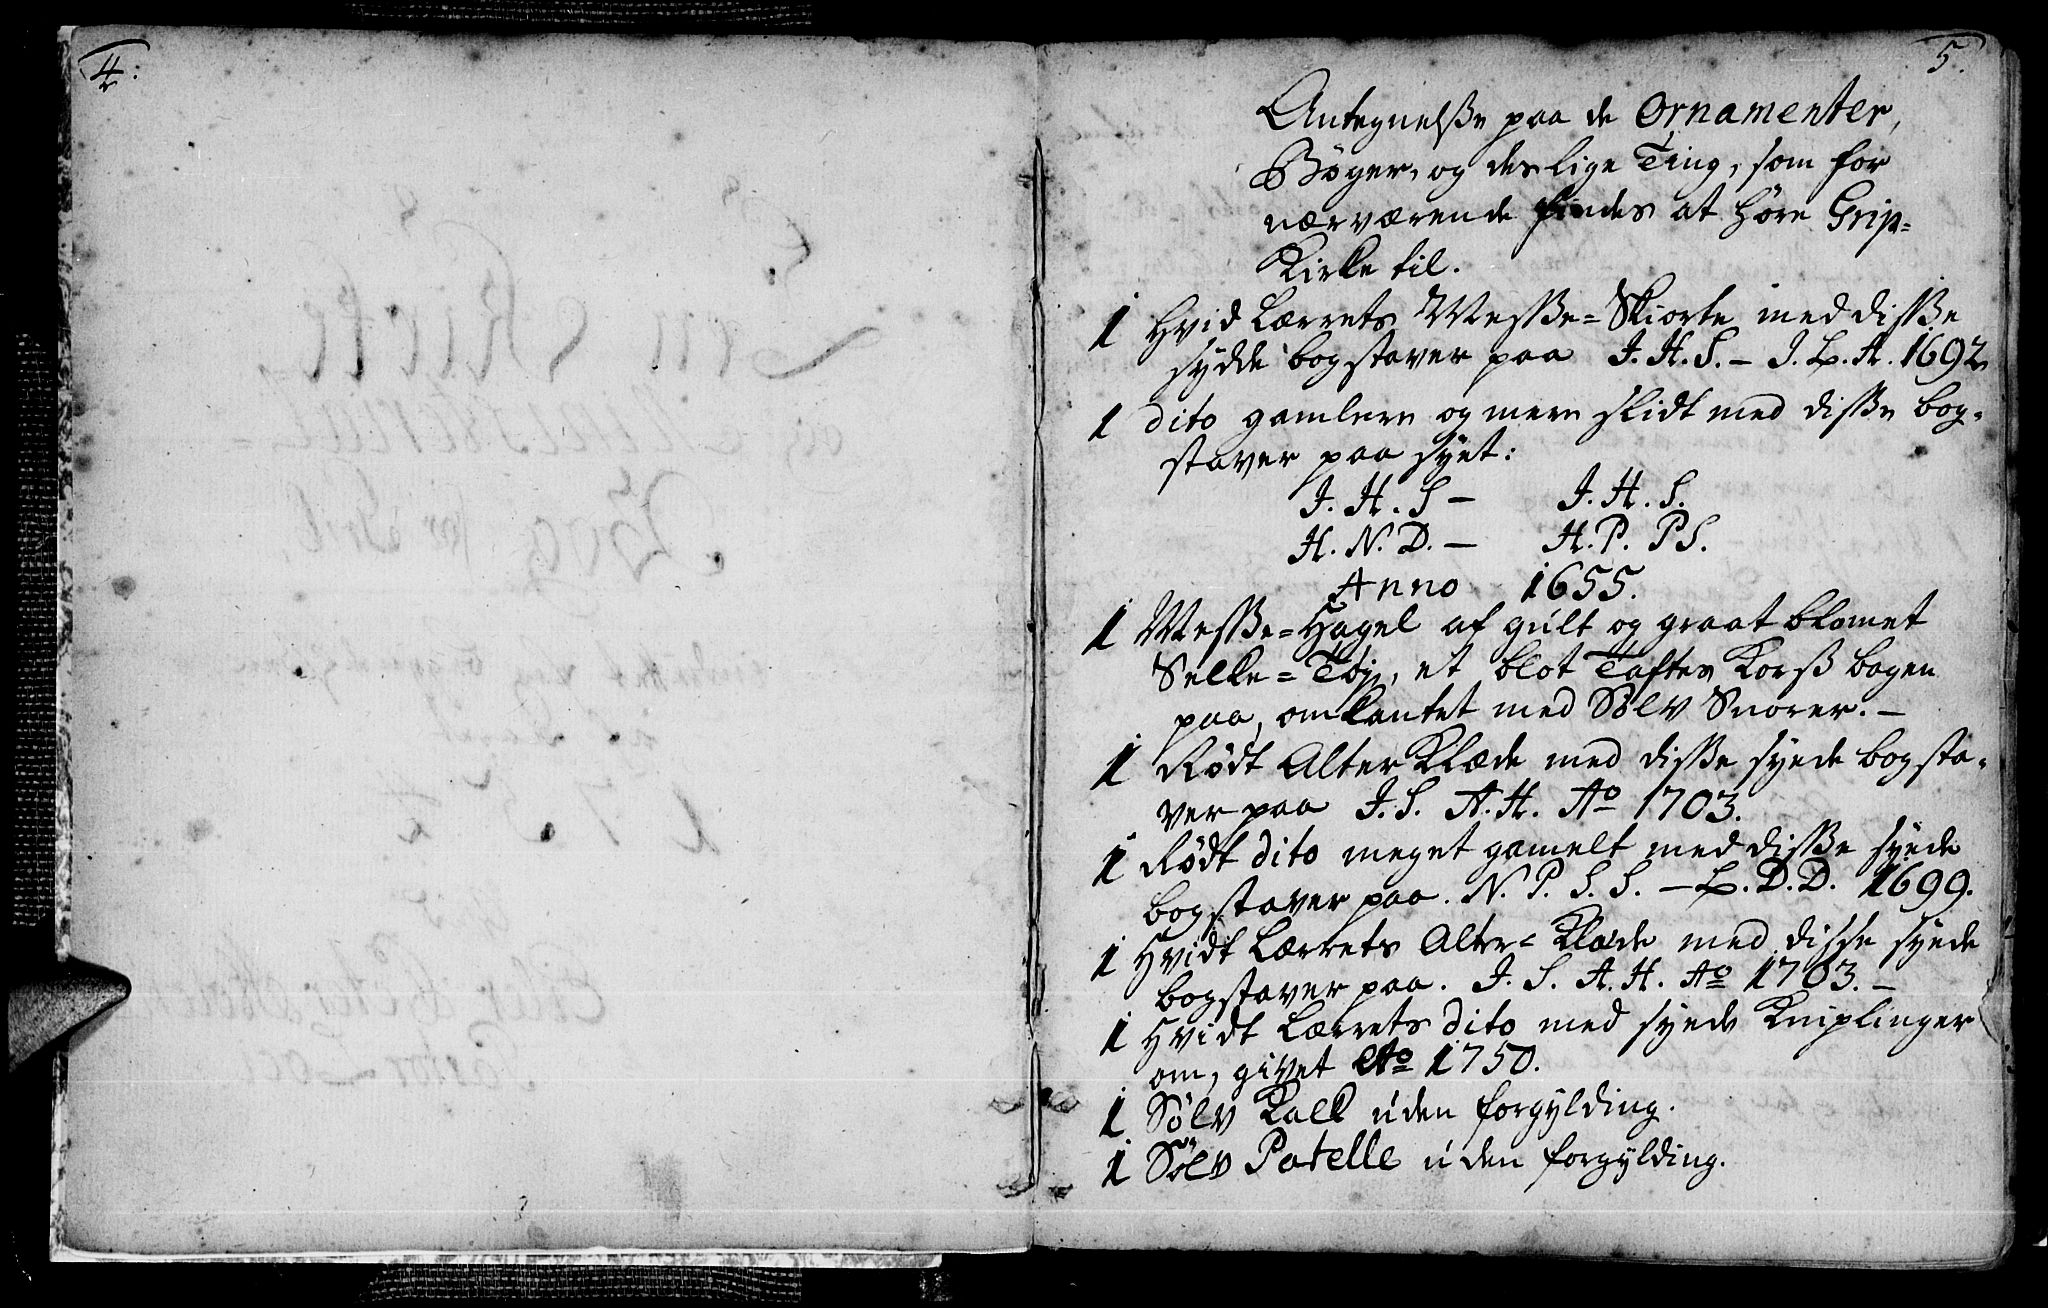 4:
5.
Antegnelsse paa de Ornamenter,
Bøger, og deslige Ting, som for
nærværende findes at høre Grip-
Kirke til.
1 Hvid Lærrets Messe=Skiorte med disse
sydde bogstaver paa J. H. S. – J. L. H. 1692
1 dito gamlere og mere slidt med disse bog-
staver paa syet:
J. H. S – J. H. S.
H. N. D. – H. P. P S.
Anno 1655.
1 Messe=Hagel af gult og graat blomet
Selke=Tøj, et blot Taftes Korss bagen
paa, omkantet med Sølv Snorer. –
1 Rødt Alter Klæde med disse syede bogsta-
ver paa J. S. A. H. Ao 1703.
1 Rødt dito meget gamelt med disse syede
bogstaver paa. N. P. S. S. – L. D. D. 1699.
1 Hvidt Lærrets Alter=Klæde med disse syede
bogstaver paa. J. S. A. H. Ao 1703. –
1 Hvidt Lærrets dito med syede Kniplinger
om, givet Ao 1750.
1 Sølv Kalk uden forgylding.
1 Sølv Patelle uden forgylding.